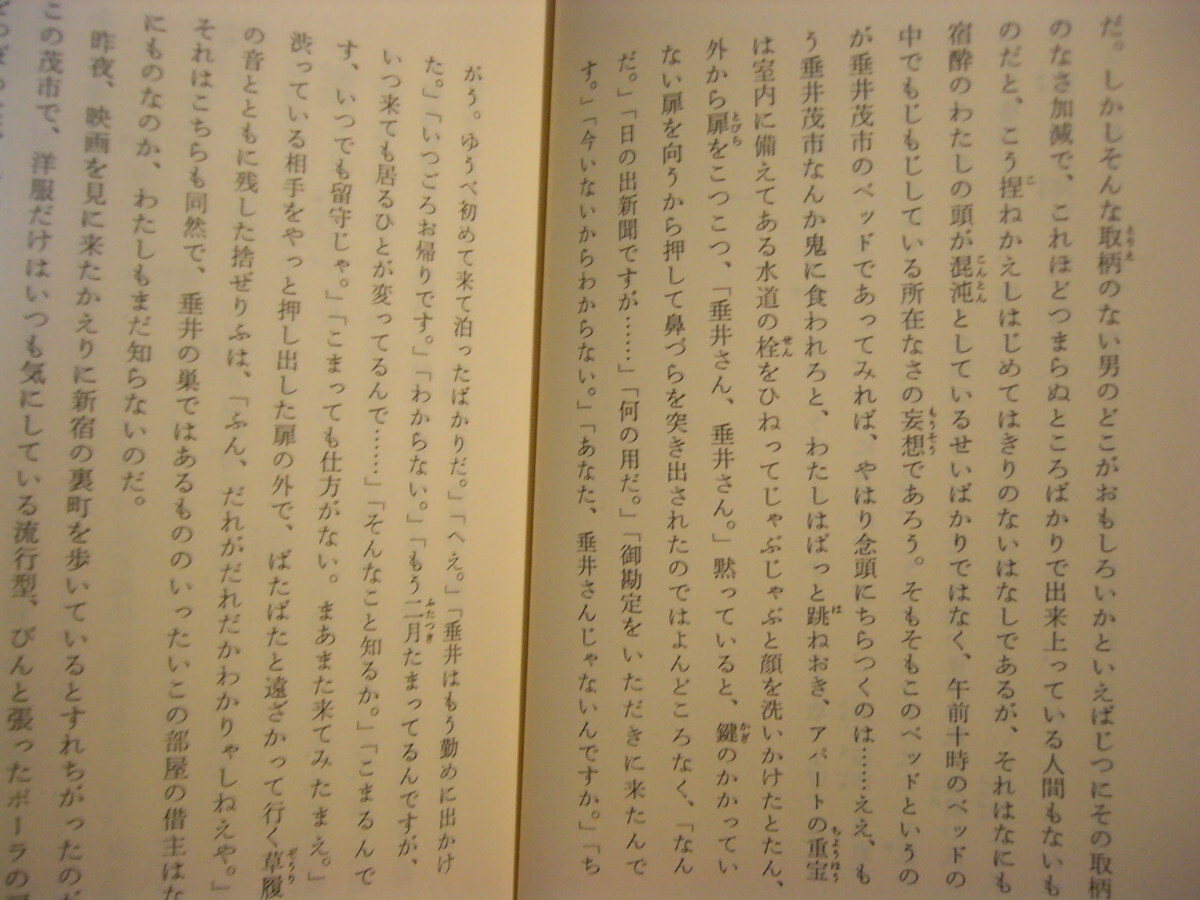 だ。しかしそんな取柄のない男のどこがおもしろいかといえばじつにその取柄
のなさ加減で、これほどつまらぬところばかりで出来上っている人間もないも
のだと、こう捏ねかえしはじめてはきりのないはなしであるが、それはなにも
宿酔のわたしの頭が混沌としているせいばかりではなく、午前十時のベッドの
中でもじもじしている所在なさの妄想であろう。そもそもこのベッドというの
が垂井茂市のベッドであってみれば、やはり念頭にちらつくのは……ええ、も
う垂井茂市なんか鬼に食われろと、わたしはぱっと跳ねおき、アパートの重宝
は室内に備えてある水道の栓をひねってじゃぶじゃぶと顔を洗いかけたとたん、
外から扉をこつこつ、「垂井さん、垂井さん。」黙っていると、鍵のかかってい
ない扉を向うから押して鼻づらを突き出されたのではよんどころなく、「なん
だ。」「日の出新聞ですが……」「何の用だ。」「御勘定をいただきに来たんで
す。」「今いないからわからない。」「あなた、垂井さんじゃないんですか。」「ち
がう。ゆうべ初めて来て泊ったばかりだ。」「へえ。」「垂井はもう勤めに出かけ
た。」「いつごろお帰りです。」「わからない。」「もう二月たまってるんですが、
いつ来ても居るひとが変ってるんで……」「そんなこと知るか。」「こまるんで
す、いつでも留守じゃ。」「こまっても仕方がない。まあまた来てみたまえ。」
渋っている相手をやっと押し出した扉の外で、ばたばたと遠ざかって行く草履
の音とともに残した捨ぜりふは、「ふん、だれがだれだかわかりゃしねえや。」
それはこちらも同然で、垂井の巣ではあるもののいったいこの部屋の借主はな
にものなのか、わたしもまだ知らないのだ。
昨夜、映画を見に来たかえりに新宿の裏町を歩いているとすれちがったのが
この茂市で、洋服だけはいつも気にしている流行型、ぴんと張ったポーラの